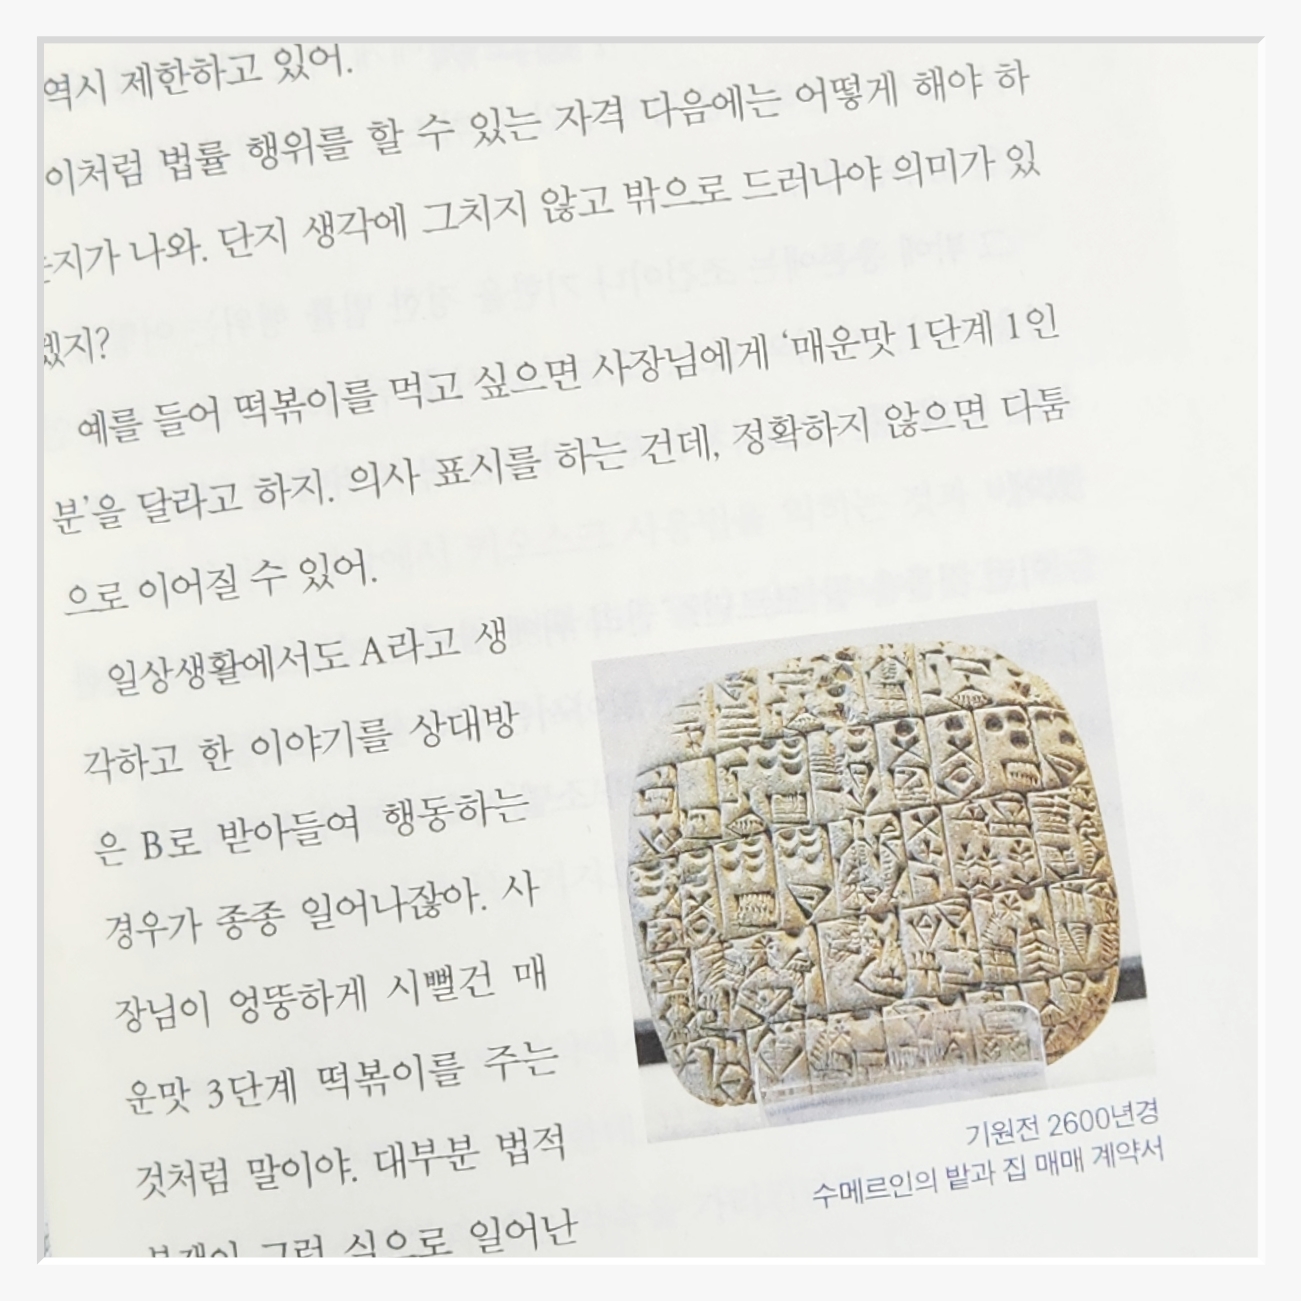 역시 제한하고 있어.
이처럼 법률 행위를 할 수 있는 자격 다음에는 어떻게 해야 하
는지가 나와. 단지 생각에 그치지 않고 밖으로 드러나야 의미가 있
겠지?
예를 들어 떡볶이를 먹고 싶으면 사장님에게 ‘매운맛 1단계 1인
분’을 달라고 하지. 의사 표시를 하는 건데, 정확하지 않으면 다툼
으로 이어질 수 있어.
일상생활에서도 A라고 생
각하고 한 이야기를 상대방
은 B로 받아들여 행동하는
경우가 종종 일어나잖아. 사
장님이 엉뚱하게 시뻘건 매
운맛 3단계 떡볶이를 주는
것처럼 말이야. 대부분 법적
그런 식으로 일어난
기원전 2600년경
수메르인의 밭과 집 매매 계약서